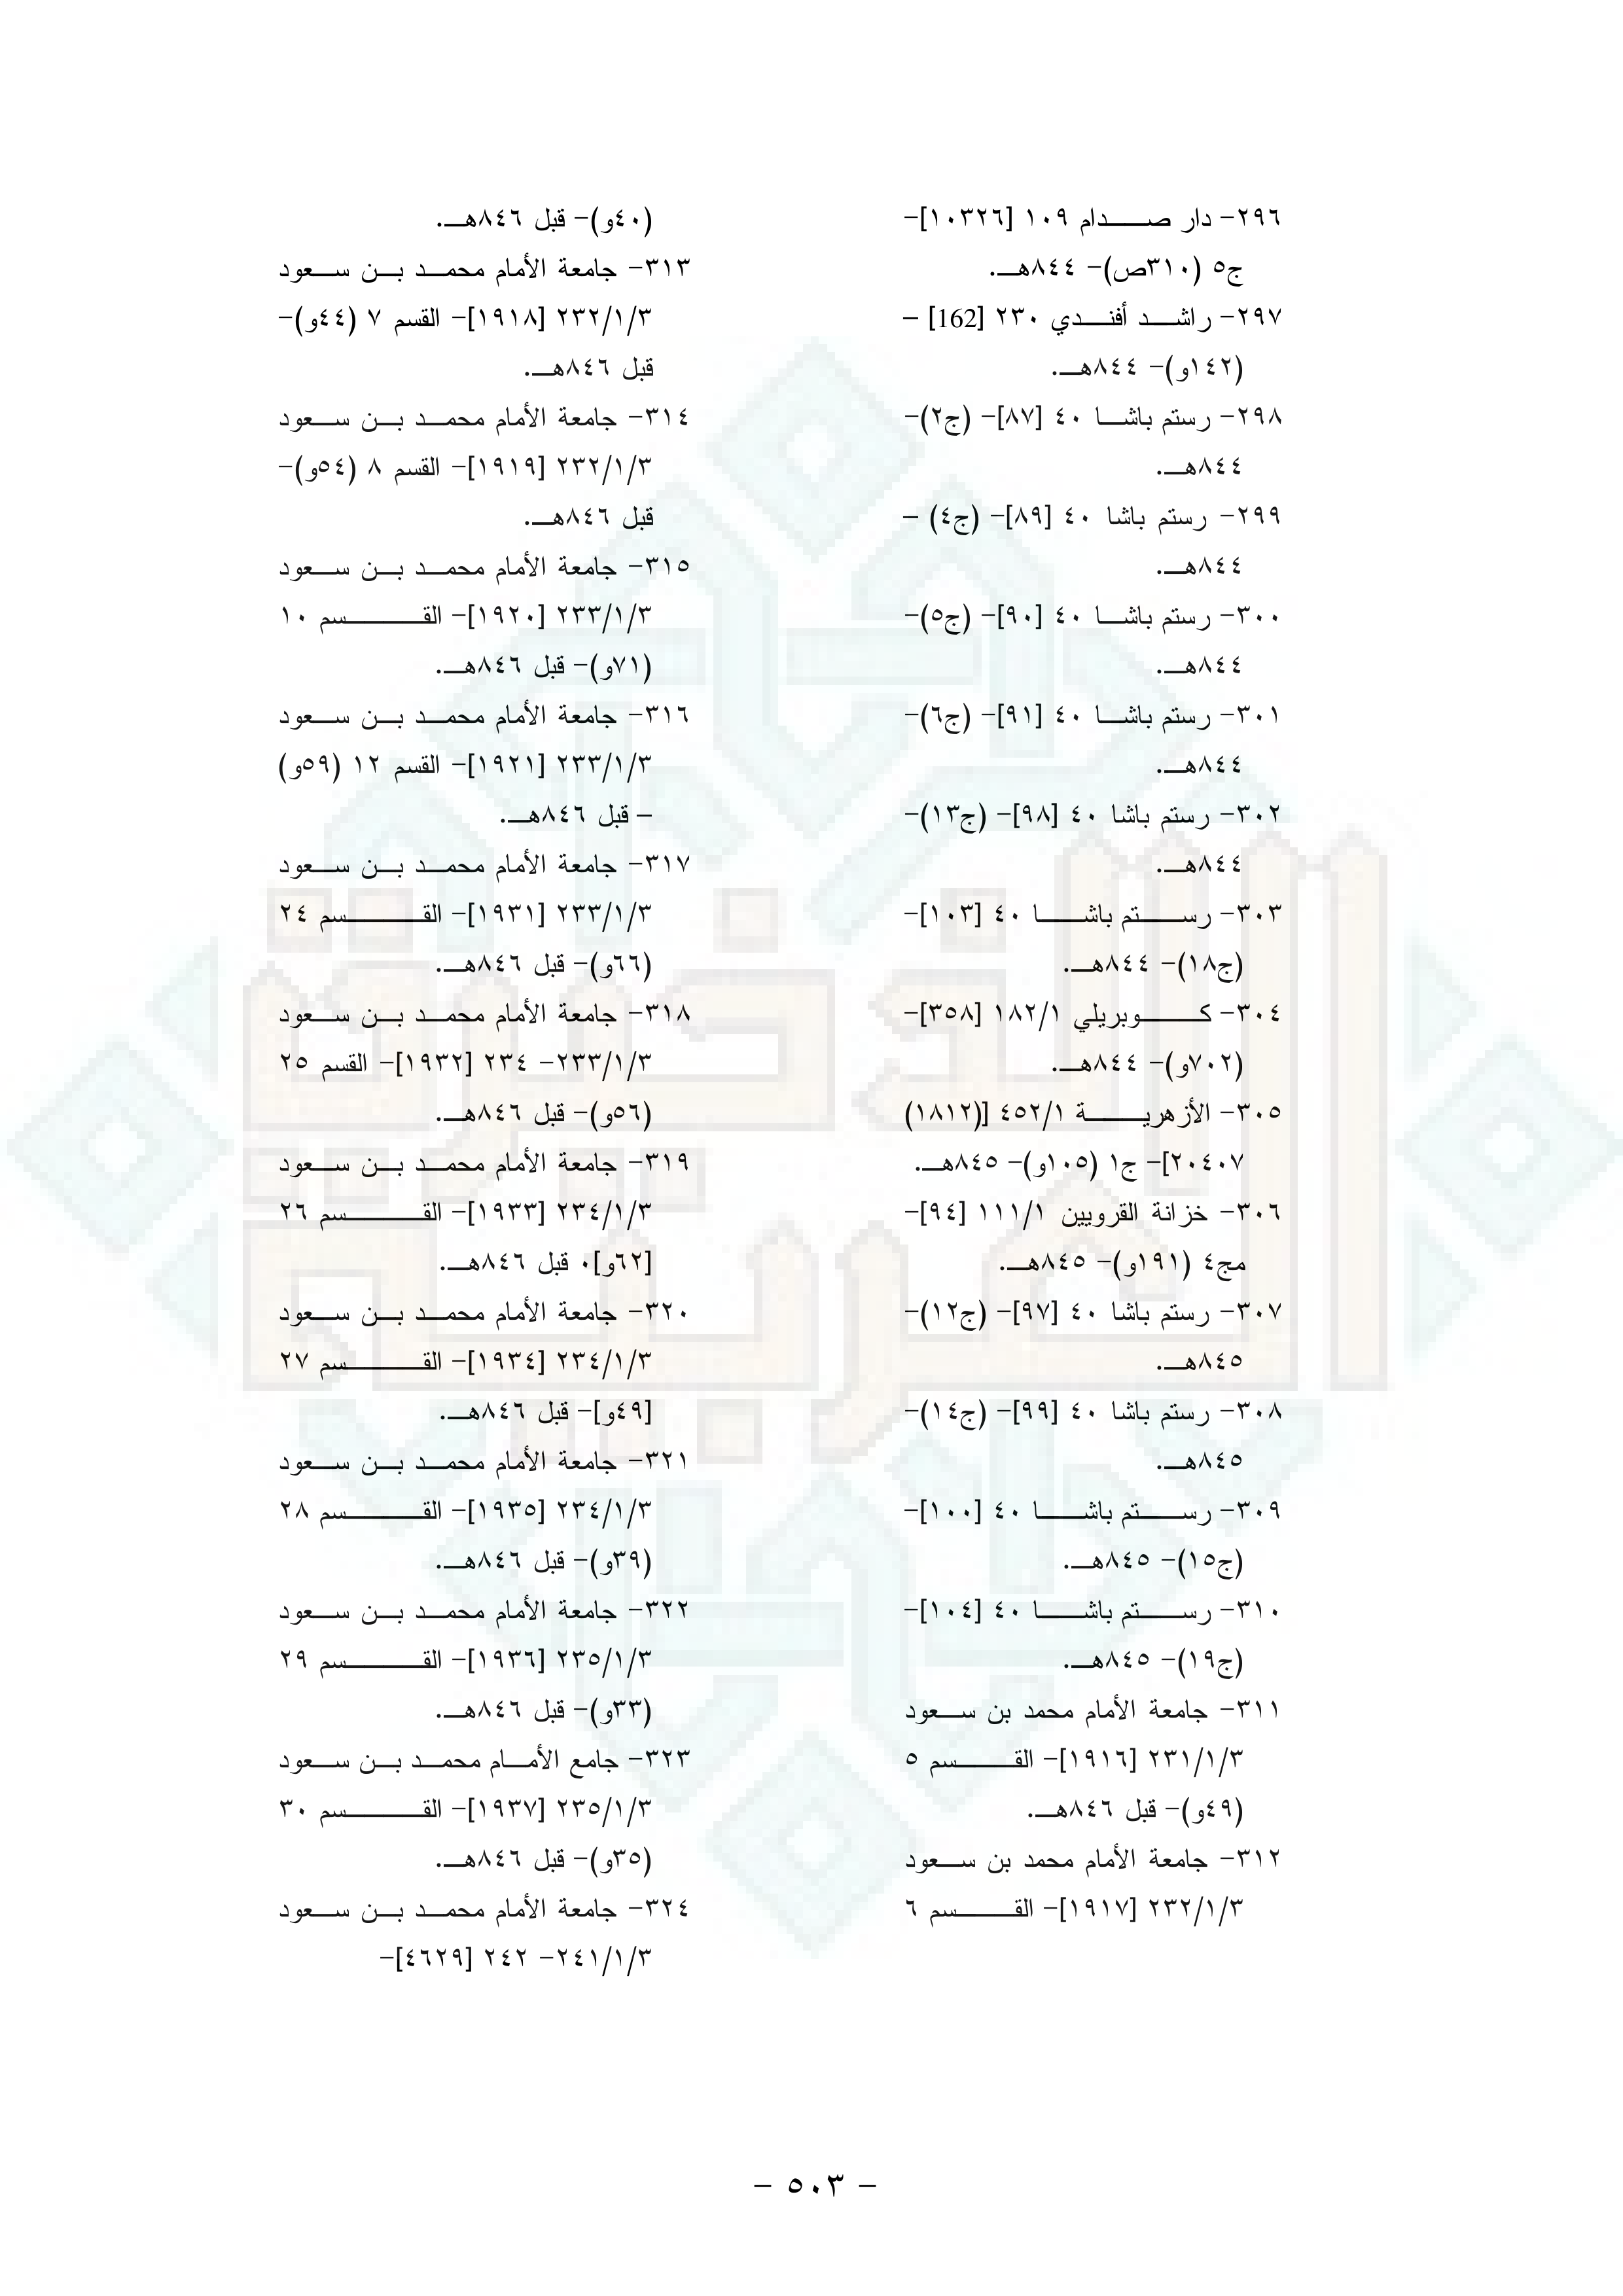 ٢٩٦- دار صدام ١٠٩ [١٠٣٢٦]-
ج٥ (٣١٠ص)- ٨٤٤هـ.
٢٩٧- راشد أفندي ٢٣٠ [162] –
(١٤٢و)- ٨٤٤هـ.
٢٩٨- رستم باشا ٤٠ [٨٧]- (ج٢)-
٨٤٤هـ.
٢٩٩- رستم باشا ٤٠ [٨٩]- (ج٤) –
٨٤٤هـ.
٣٠٠- رستم باشا ٤٠ [٩٠]- (ج٥)-
٨٤٤هـ.
٣٠١- رستم باشا ٤٠ [٩١]- (ج٦)-
٨٤٤هـ.
٣٠٢- رستم باشا ٤٠ [٩٨]- (ج١٣)-
٨٤٤هـ.
٣٠٣- رستم باشا ٤٠ [١٠٣]-
(ج١٨)- ٨٤٤هـ.
٣٠٤- كوبريلي ١٨٢/١ [٣٥٨]-
(٧٠٢و)- ٨٤٤هـ.
٣٠٥- الأزهرية ٤٥٢/١ [(١٨١٢)
٢٠٤٠٧]- ج١ (١٠٥و)- ٨٤٥هـ.
٣٠٦- خزانة القرويين ١١١/١ [٩٤]-
مج٤ (١٩١و)- ٨٤٥هـ.
٣٠٧- رستم باشا ٤٠ [٩٧]- (ج١٢)-
٨٤٥هـ.
٣٠٨- رستم باشا ٤٠ [٩٩]- (ج١٤)-
٨٤٥هـ.
٣٠٩- رستم باشا ٤٠ [١٠٠]-
(ج١٥)- ٨٤٥هـ.
٣١٠- رستم باشا ٤٠ [١٠٤]-
(ج١٩)- ٨٤٥هـ.
٣١١- جامعة الأمام محمد بن سعود
٢٣١/١/٣ [١٩١٦]- القسم ٥
(٤٩و)- قبل ٨٤٦هـ.
٣١٢- جامعة الأمام محمد بن سعود
٢٣٢/١/٣ [١٩١٧]- القسم ٦
(٤٠و)- قبل ٨٤٦هـ.
٣١٣- جامعة الأمام محمد بن سعود
٢٣٢/١/٣ [١٩١٨]- القسم ٧ (٤٤و)-
قبل ٨٤٦هـ.
٣١٤- جامعة الأمام محمد بن سعود
٢٣٢/١/٣ [١٩١٩]- القسم ٨ (٥٤و)-
قبل ٨٤٦هـ.
٣١٥- جامعة الأمام محمد بن سعود
٢٣٣/١/٣ [١٩٢٠]- القسم ١٠
(٧١و)- قبل ٨٤٦هـ.
٣١٦- جامعة الأمام محمد بن سعود
٢٣٣/١/٣ [١٩٢١]- القسم ١٢ (٥٩و)
– قبل ٨٤٦هـ.
٣١٧- جامعة الأمام محمد بن سعود
٢٣٣/١/٣ [١٩٣١]- القسم ٢٤
(٦٦و)- قبل ٨٤٦هـ.
٣١٨- جامعة الأمام محمد بن سعود
٢٣٣/١/٣- ٢٣٤ [١٩٣٢]- القسم ٢٥
(٥٦و)- قبل ٨٤٦هـ.
٣١٩- جامعة الأمام محمد بن سعود
٢٣٤/١/٣ [١٩٣٣]- القسم ٢٦
[٦٢و]٠ قبل ٨٤٦هـ.
٣٢٠- جامعة الأمام محمد بن سعود
٢٣٤/١/٣ [١٩٣٤]- القسم ٢٧
[٤٩و]- قبل ٨٤٦هـ.
٣٢١- جامعة الأمام محمد بن سعود
٢٣٤/١/٣ [١٩٣٥]- القسم ٢٨
(٣٩و)- قبل ٨٤٦هـ.
٣٢٢- جامعة الأمام محمد بن سعود
٢٣٥/١/٣ [١٩٣٦]- القسم ٢٩
(٣٣و)- قبل ٨٤٦هـ.
٣٢٣- جامع الأمام محمد بن سعود
٢٣٥/١/٣ [١٩٣٧]- القسم ٣٠
(٣٥و)- قبل ٨٤٦هـ.
٣٢٤- جامعة الأمام محمد بن سعود
٢٤١/١/٣- ٢٤٢ [٤٦٢٩]-
- ٥٠٣ -